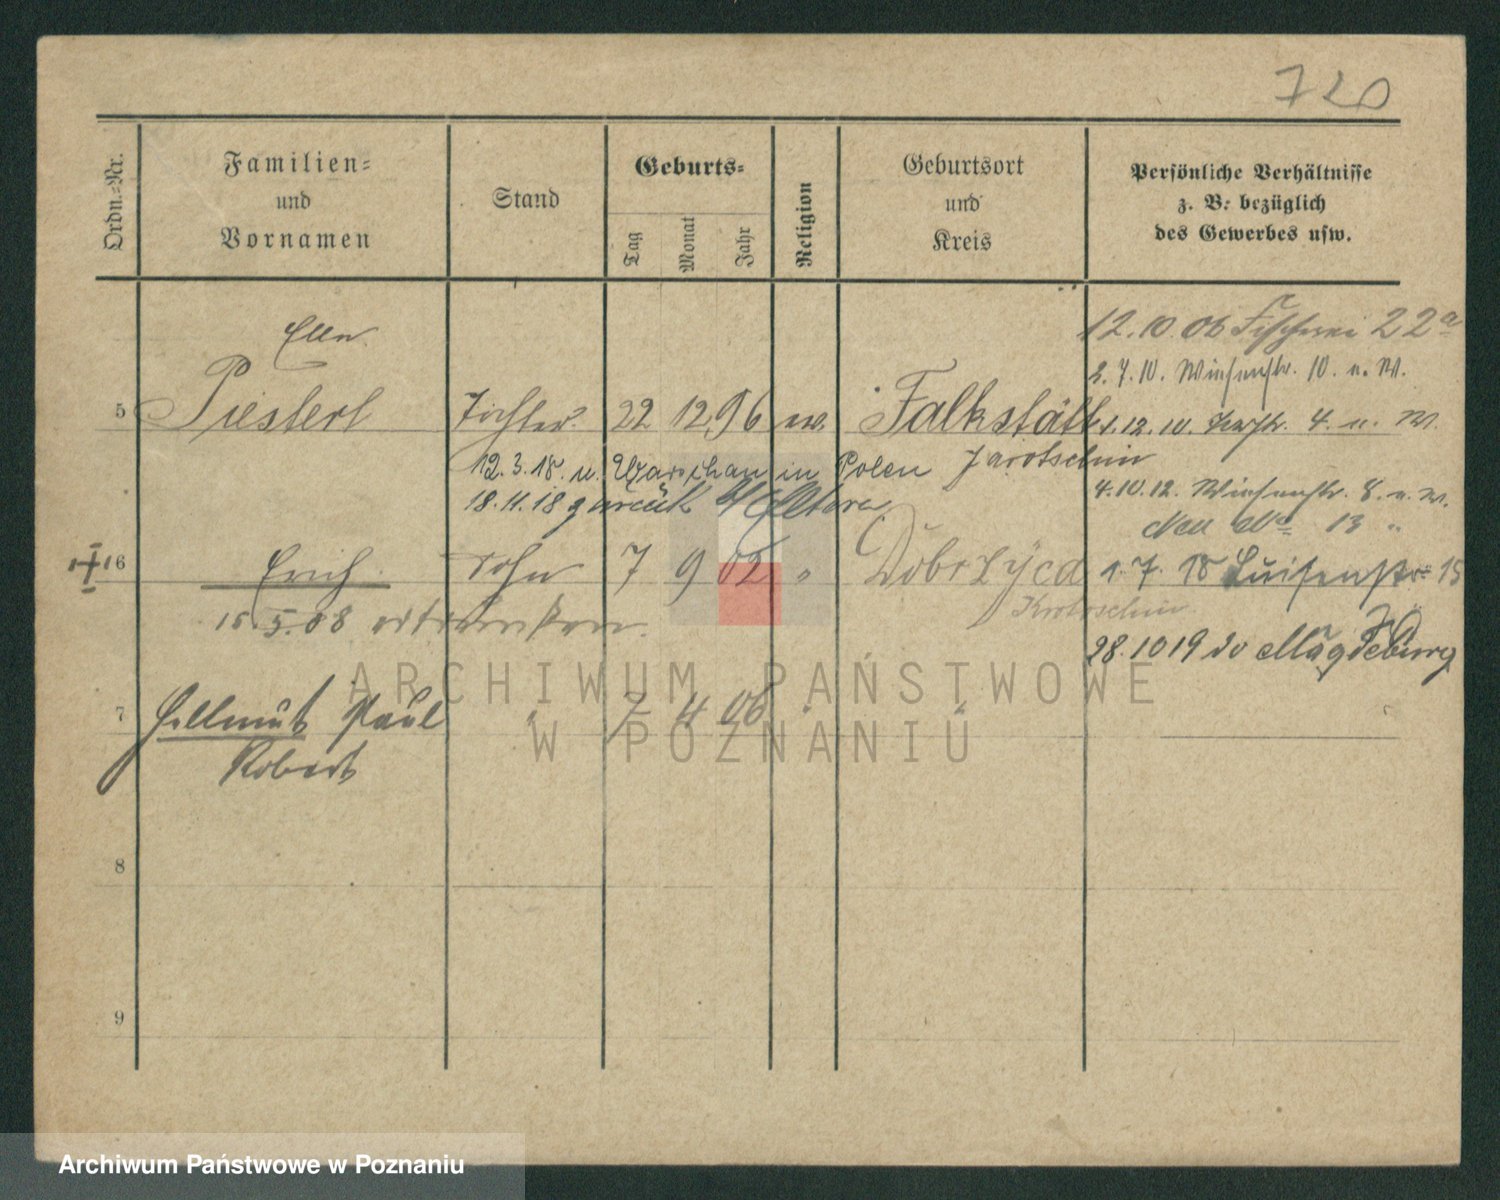 720
Ordn.-Nr.
Familien-
und
Vornamen
Stand
Geburts-
Tag
Monat
Jahr
Religion
Geburtsort
und
Kreis
Persönliche Verhältnisse
z. B. bezüglich
des Gewerbes usw.
12.10.06 Fischerei 22a
Ella
2.7.10. Wiesenstr. 10. u. W.
5 Piesterl Tochter 22 12 96 ev. Falkstätt
1.12.10. 4. u. W.
12.3.18. n. Warschau in Polen Jarotschin
4.10.12. Wiesenstr. 8. u. W.
18.11.18 zurück z/ Eltern
Neu No 13 "
6 Erich Sohn 7 9 02 " Dobrzyca
1.7.18 Luisenstr 15
Krotoschin
15.5.08 ertrunken.
28.10 19 do Magdeburg
7 Hellmut Paul " 7 4 06 " "
Robert
8
9
ARCHIWUM PAŃSTWOWE
W POZNANIU
Archiwum Państwowe w Poznaniu